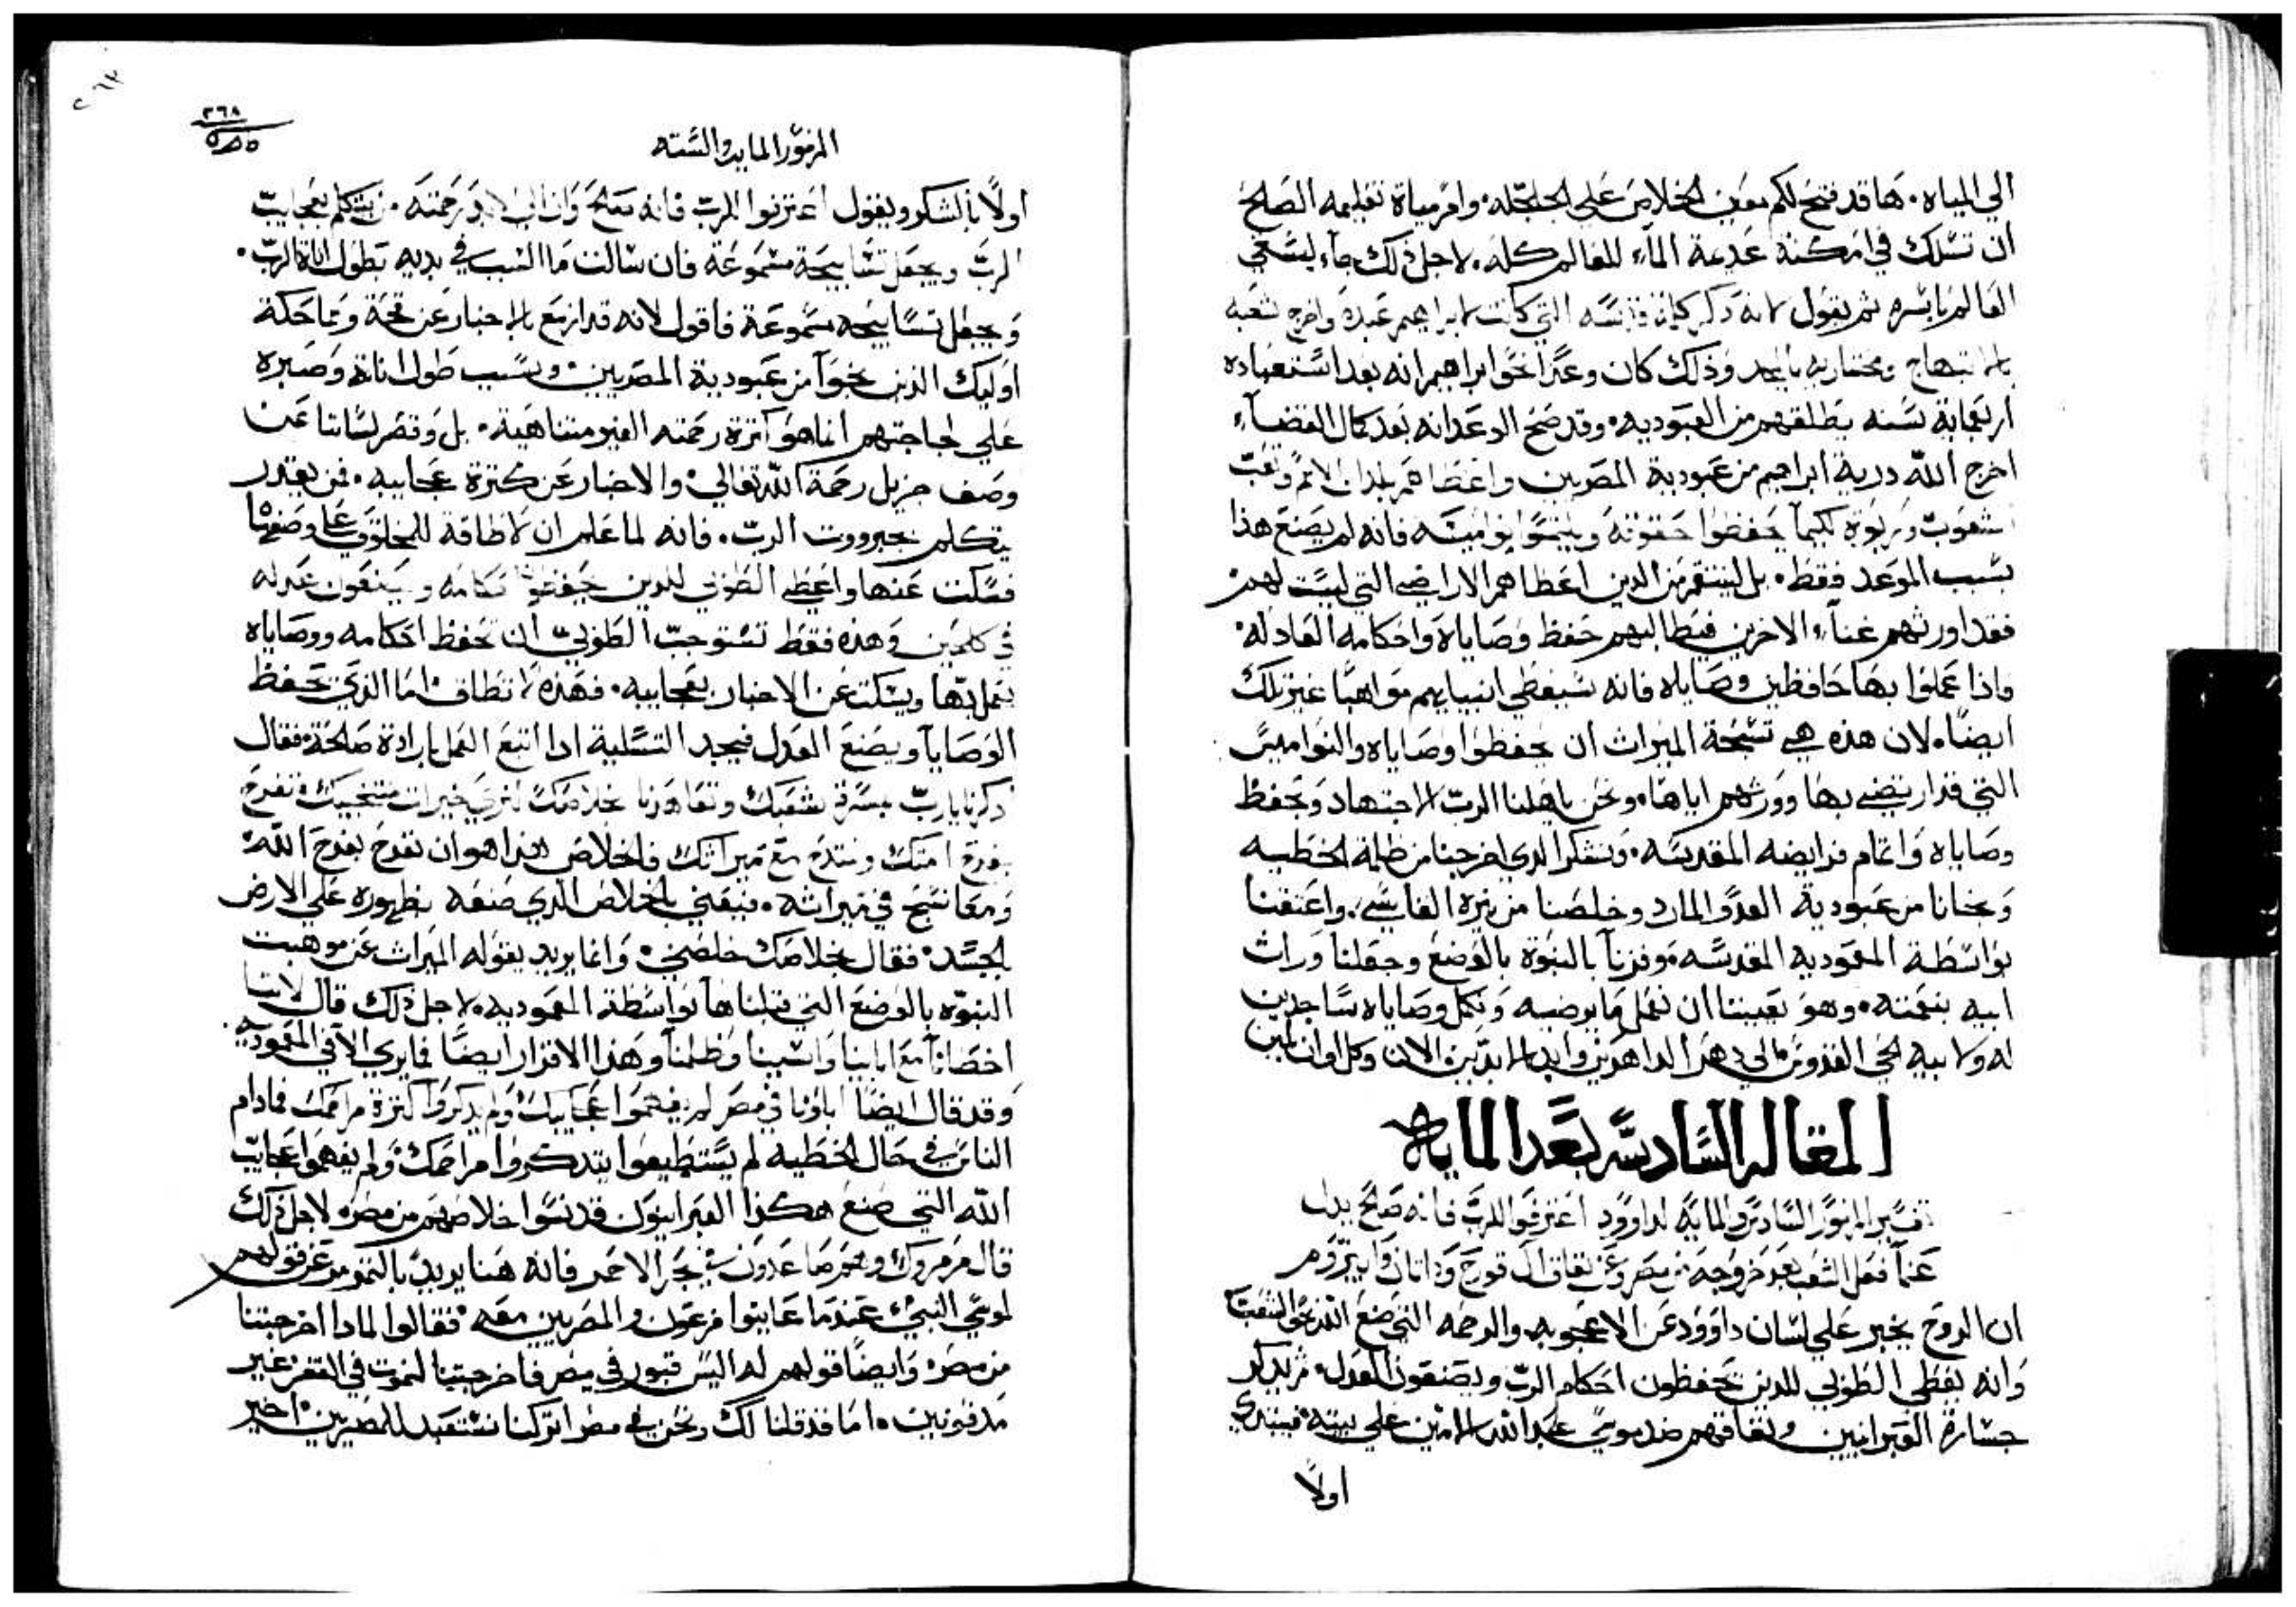 الي المياه. ها قد فتح لكم معين الخلاص علي الجلجلة. وامر مياة تعليمه الصالح
ان تسلك في امكنة عديمة الماء للعالم كله. لاجل ذلك جاء ليسقي
العالم باسره ثم يقول لانه ذكر كلمة قدسه التي كانت لابراهيم عبده واخرج شعبه
بالابتهاج ومختاريه وذلك كان وعد نحو ابراهيم انه بعد استعباده
اربعماية سنه يطلقهم من العبوديه. وقد صح الوعد انه بعد كمال القضاء
اخرج الله درية ابراهيم من عبودية المصريين واعطاهم بلدان الامم وتعب
شعوب لكيما يحفظوا حقوقه نواميسه فانه لم يصنع هذا
بسبب الموعد فقط. بل لينتقم من الدين اعطاهم الاراضي التي ليست لهم
فقد اورثهم غناء الاخرين فيطالبهم حفظ وصاياه واحكامه العادله.
فاذا عملوا بها حافظين وصاياه فانه سيعطي مواهبا غير تلك
ايضا. لان هذه هي نتيجة الميراث ان يحفظوا وصاياه والنواميس
التي قد ارتضي بها وورثهم اياها. ونحن ياهلنا الرب للاجتهاد ونحفظ
وصاياه واتمام فرايضه المقدسه. ونشكر الدي اخرجنا من ظلمة الخطيه
ونجانا من عبودية العدو المارد وخلصنا من نيره القاسي. واعتقنا
بواسطة المعموديه المقدسه وفزنا بالبنوة بالوضع وجعلنا وراث
ابيه بنعمته. وهو يعيننا ان نعمل ما يرضيه ونكمل وصاياه ساجدين
له ولابيه الحي القدوس الي دهر الداهرين وابد الابدين الان وكل اوان امين
المقاله السادسه بعد المايه
تفسير المزمور السادس والمايه لداوود اعترفوا للرب فانه صالح يدل
عما فعل الشعب بعد خروجه من مصر وعن نفاق ال قورح وداتان وابيروم
ان الروح يخبر علي لسان داوود عن الاعجوبه والرحمه التي صنع الله نحو الشعب
وانه يعطي الطوبي للدين يحفظون احكام الرب ويصنعون العدل. ثم يذكر
جسارة العبرانيين ونفاقهم ضد موسي عبد الله الامين علي بيته. فيبتدي
اولا
٣٦٨
المزمور المايه والسته
اولا بالشكر ويقول اعترفوا للرب فانه صالح وان الي الابد رحمته. من يتكلم بعجايب
الرب ويجعل تسابيحه مسموعة فان سالت ما السبب في بديه بطول اناة الرب.
وجعل تسابيحه مسموعة فاقول لانه قد ازمع بالاخبار عن قحة ومماحكة
اوليك الذين نجوا من عبودية المصريين. وبسبب طول اناته وصبره
علي لجاجتهم انما هو كثرة رحمته الغير متناهية. بل وتقصر لساننا عن
وصف جزيل رحمة الله تعالي. والاخبار عن كثرة عجايبه. فمن يقدر
يتكلم بجبرووت الرب. فانه لما علم ان لا طاقة للمخلوق علي وصفها
فسكت عنها واعطي الطوبي للدين يحفظوا احكامه ويصنعون عدله
في كلحين وهذه فقط تستوجب الطوبي ان تحفظ احكامه ووصاياه
يعمل بها ويسكت عن الاخبار بعجايبه. فهذه لا تطاق. اما الذي تحفظ
الوصايا ويصنع العدل فيجد التسلية ادا اتبع العمل بارادة صالحة. فقال
ذكرنا يارب بمسرة شعبك وتعاهدنا بخلاصك لنري خيرات منتخبيك. نفرح
بفرح امتك ونمتدح مع ميراثك فالخلاص هذا هو ان نفرح بفرح الله
ومعا نسبح في ميراثه. فيعني بالخلاص الدي صنعه بظهوره علي الارض
بالجسد. فقال بخلاصك خلصني. وانما يريد بقوله الميراث عن موهبت
البنوه بالوضع التي قبلناها بواسطة المعموديه. لاجل ذلك قال لاننا
اخطانا مع اباينا واثمنا وظلمنا وهذا الاقرار ايضا فما يري الا في المعموديه.
وقد قال ايضا اباونا في مصر لم يفهموا عجايبك ولم يذكروا كثرة مراحمك فمادام
الناس في حال الخطيه لم يستطيعوا يتدكروا مراحمك. ولم يفهموا عجايب
الله التي صنع هكذا العبرانيون قد نسوا خلاصهم من مصر. لاجل ذلك
قال مرمروك وهم صاعدون في بحر الاحمر فانه هنا يريد بالتمرمر عن قولهم
لموسي النبي عندما عاينوا فرعون والمصريين معه. فقالوا لمادا اخرجتنا
من مصر. وايضا قولهم له اليس قبور في مصر فاخرجتنا لنموت في القفر غير
مدفونين. اما قد قلنا لك ونحن في مصر اتركنا نستعبد للمصريين. اخير